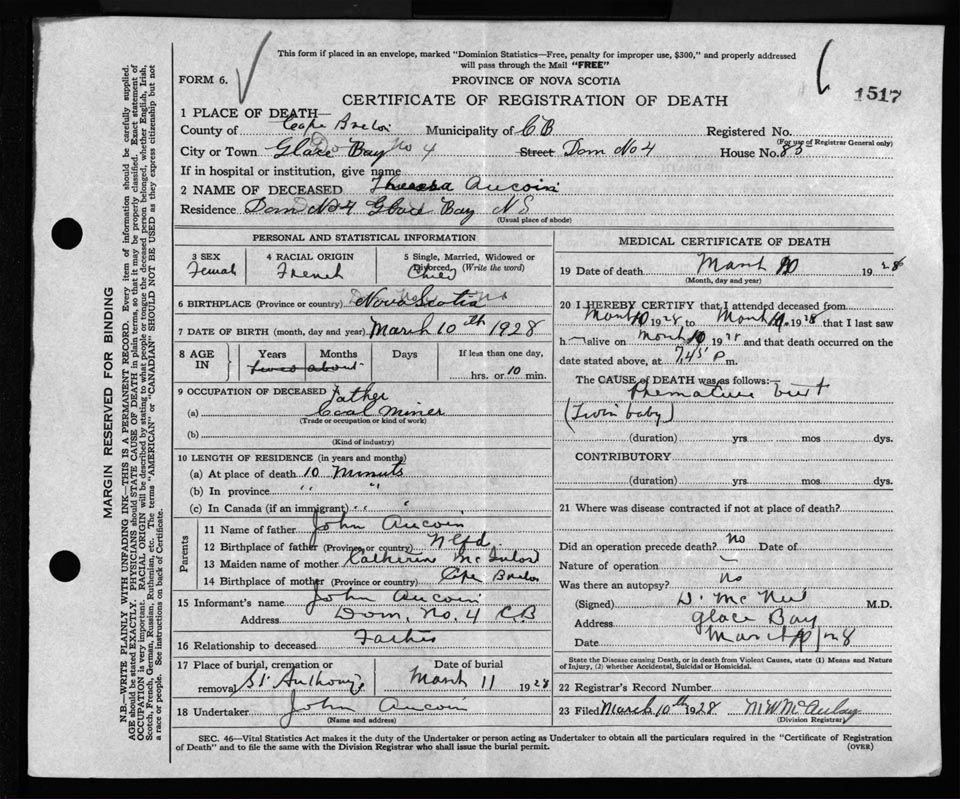 This form if placed in an envelope, marked "Dominion Statistics—Free, penalty for improper use, $300," and properly addressed
will pass through the Mail "FREE"
FORM 6.
PROVINCE OF NOVA SCOTIA
1517
CERTIFICATE OF REGISTRATION OF DEATH
1 PLACE OF DEATH—
County of Cape Breton Municipality of C B Registered No.
(For use of Registrar General only)
City or Town Glace Bay No 4 Street Dom No 4 House No. 83
If in hospital or institution, give name
2 NAME OF DECEASED Theresa Aucoin
Residence Dom No 4 Glace Bay N S
(Usual place of abode)
PERSONAL AND STATISTICAL INFORMATION
3 SEX 4 RACIAL ORIGIN 5 Single, Married, Widowed or
Divorced, (Write the word)
Female French
6 BIRTHPLACE (Province or country) Nova Scotia
7 DATE OF BIRTH (month, day and year) March 10th 1928
8 AGE IN Years Months Days If less than one day,
hrs. or 10 min.
9 OCCUPATION OF DECEASED Father
(a) Coal Miner
(Trade or occupation or kind of work)
(b)
(Kind of industry)
10 LENGTH OF RESIDENCE (in years and months)
(a) At place of death 10 Minuts
(b) In province " "
(c) In Canada (if an immigrant) " "
Parents
11 Name of father John Aucoin
12 Birthplace of father (Province or country) Nfld.
13 Maiden name of mother Catherine
14 Birthplace of mother (Province or country) Cape Breton
15 Informant's name John Aucoin
Address Dom, No. 4 C.B
16 Relationship to deceased Father
17 Place of burial, cremation or Date of burial
removal St Anthony's March 11 1928
18 Undertaker John Aucoin
(Name and address)
MEDICAL CERTIFICATE OF DEATH
19 Date of death March 10 1928
(Month, day and year)
20 I HEREBY CERTIFY that I attended deceased from
March 10 1928 to March 1928 that I last saw
h alive on March 10 1928 and that death occurred on the
date stated above, at 7,45 P m.
The CAUSE of DEATH was as follows:—
Premature birt
(Twin baby)
(duration) yrs mos dys.
CONTRIBUTORY
(duration) yrs. mos. dys.
21 Where was disease contracted if not at place of death?
Did an operation precede death? no Date of
Nature of operation —
Was there an autopsy? no
(Signed) D. McNeil M.D.
Address Glace Bay
Date March 10/28
State the Disease causing Death, or in death from Violent Causes, state (1) Means and Nature
of Injury, (2) whether Accidental, Suicidal or Homicidal.
22 Registrar's Record Number
23 Filed March 10th 1928 M W McAulay
(Division Registrar)
SEC. 46—Vital Statistics Act makes it the duty of the Undertaker or person acting as Undertaker to obtain all the particulars required in the "Certificate of Registration
of Death" and to file the same with the Division Registrar who shall issue the burial permit.
(OVER)
MARGIN RESERVED FOR BINDING
N.B.—WRITE PLAINLY WITH UNFADING INK—THIS IS A PERMANENT RECORD. Every item of information should be carefully supplied.
AGE should be stated EXACTLY. PHYSICIANS should STATE CAUSE OF DEATH in plain terms, so that it may be properly classified. Exact statement of
OCCUPATION is very important. RACIAL ORIGIN will be described by stating to what people or tongue the deceased person belonged, whether English, Irish,
Scotch, French, German, Russian, Ruthenian, etc. The terms "AMERICAN" or "CANADIAN" SHOULD NOT BE USED as they express citizenship but not
a race or people. See instructions on back of Certificate.